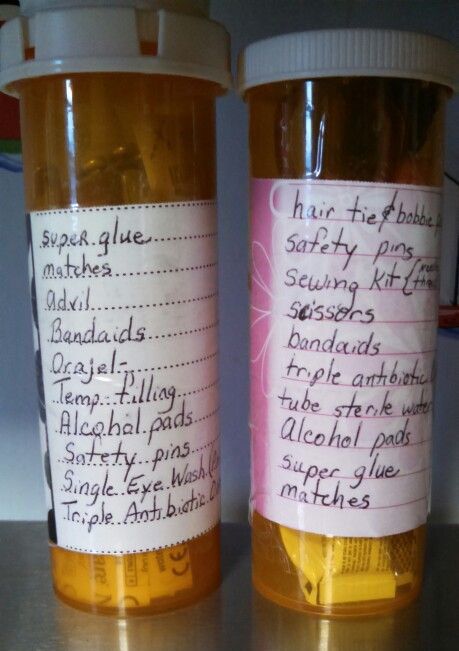 super glue
matches
Advil
Bandaids
Orajel-
Temp. filling
Alcohol pads
Safety pins
Single Eye Wash
Triple Antibiotic
hair tie & bobbie
safety pins
sewing kit {
scissors
bandaids
triple antibiotic
tube sterile water
Alcohol pads
super glue
matches